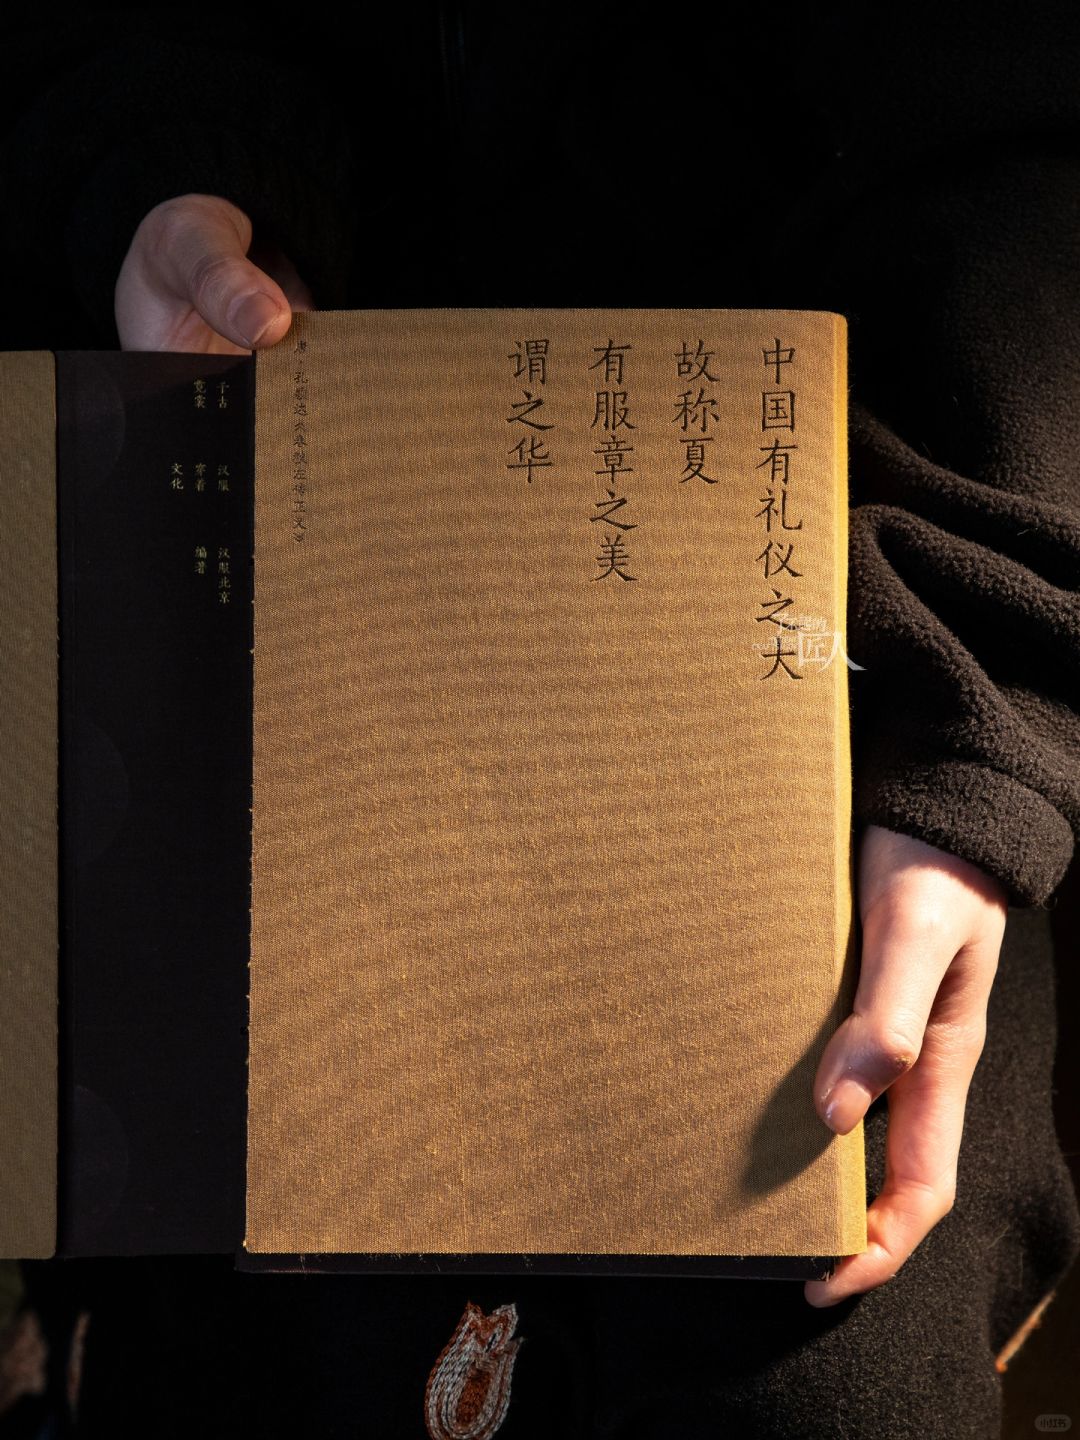 中国有礼仪之大
故称夏
有服章之美
谓之华
唐·孔颖达《春秋左传正义》
千古
霓裳
汉服
穿着
文化
汉服北京
编著
了不起的
匠人
小红书